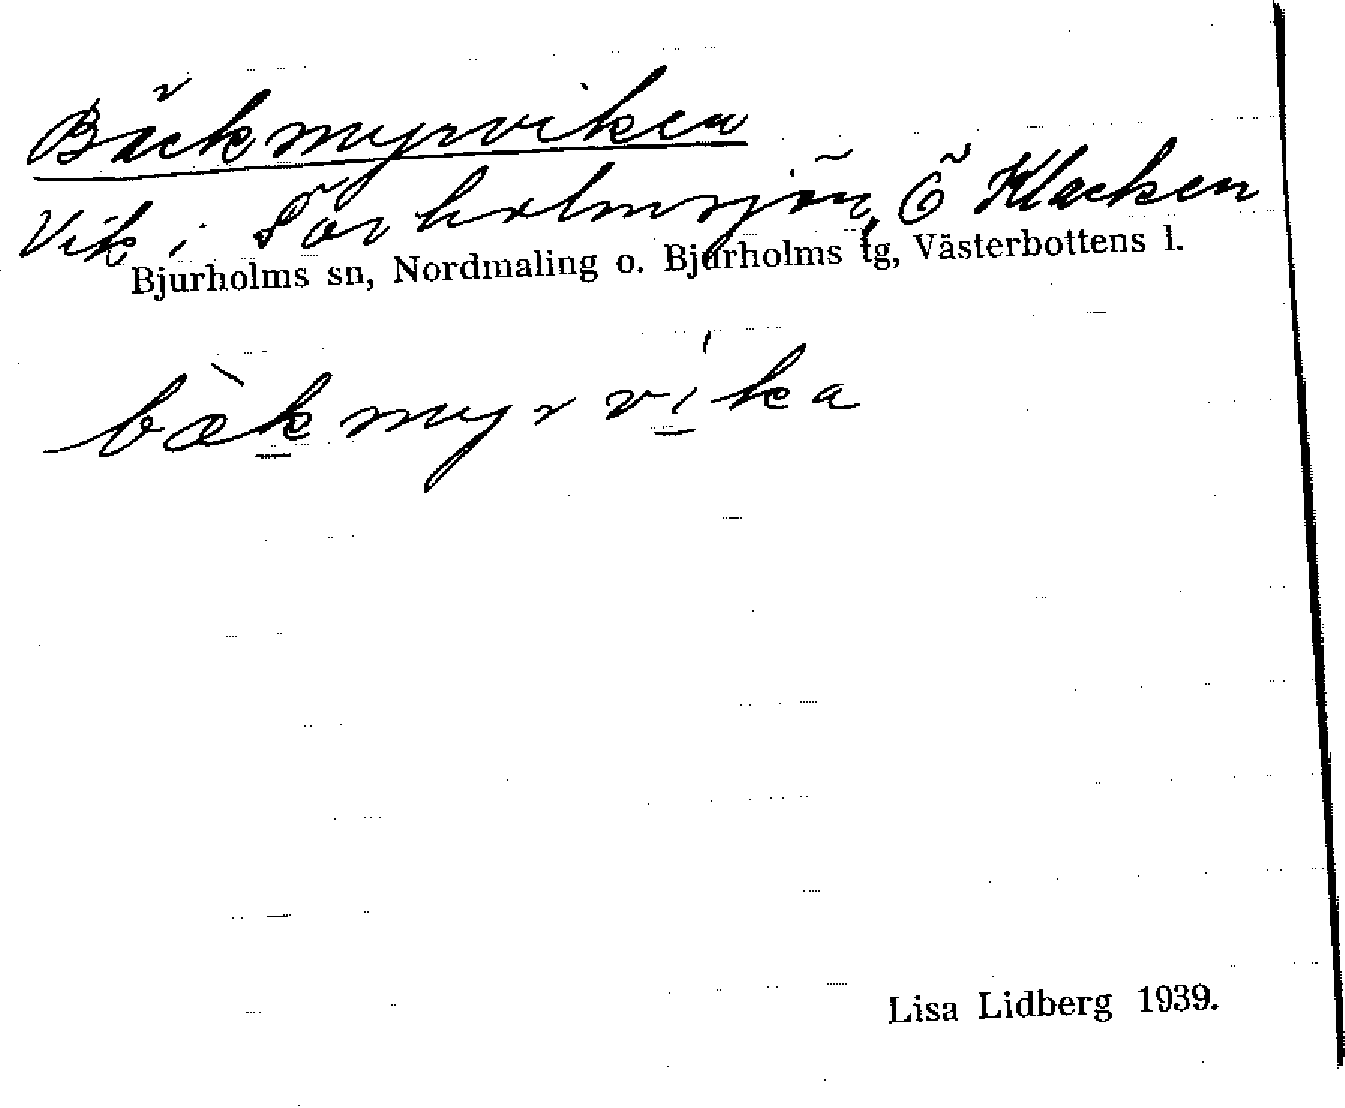 Bäckmyrviken
Vik i Sörholmsjön, Ö Klacken
Bjurholms sn, Nordmaling o. Bjurholms tg, Västerbottens l.
bæ̀kmyrvíka
Lisa Lidberg 1939.